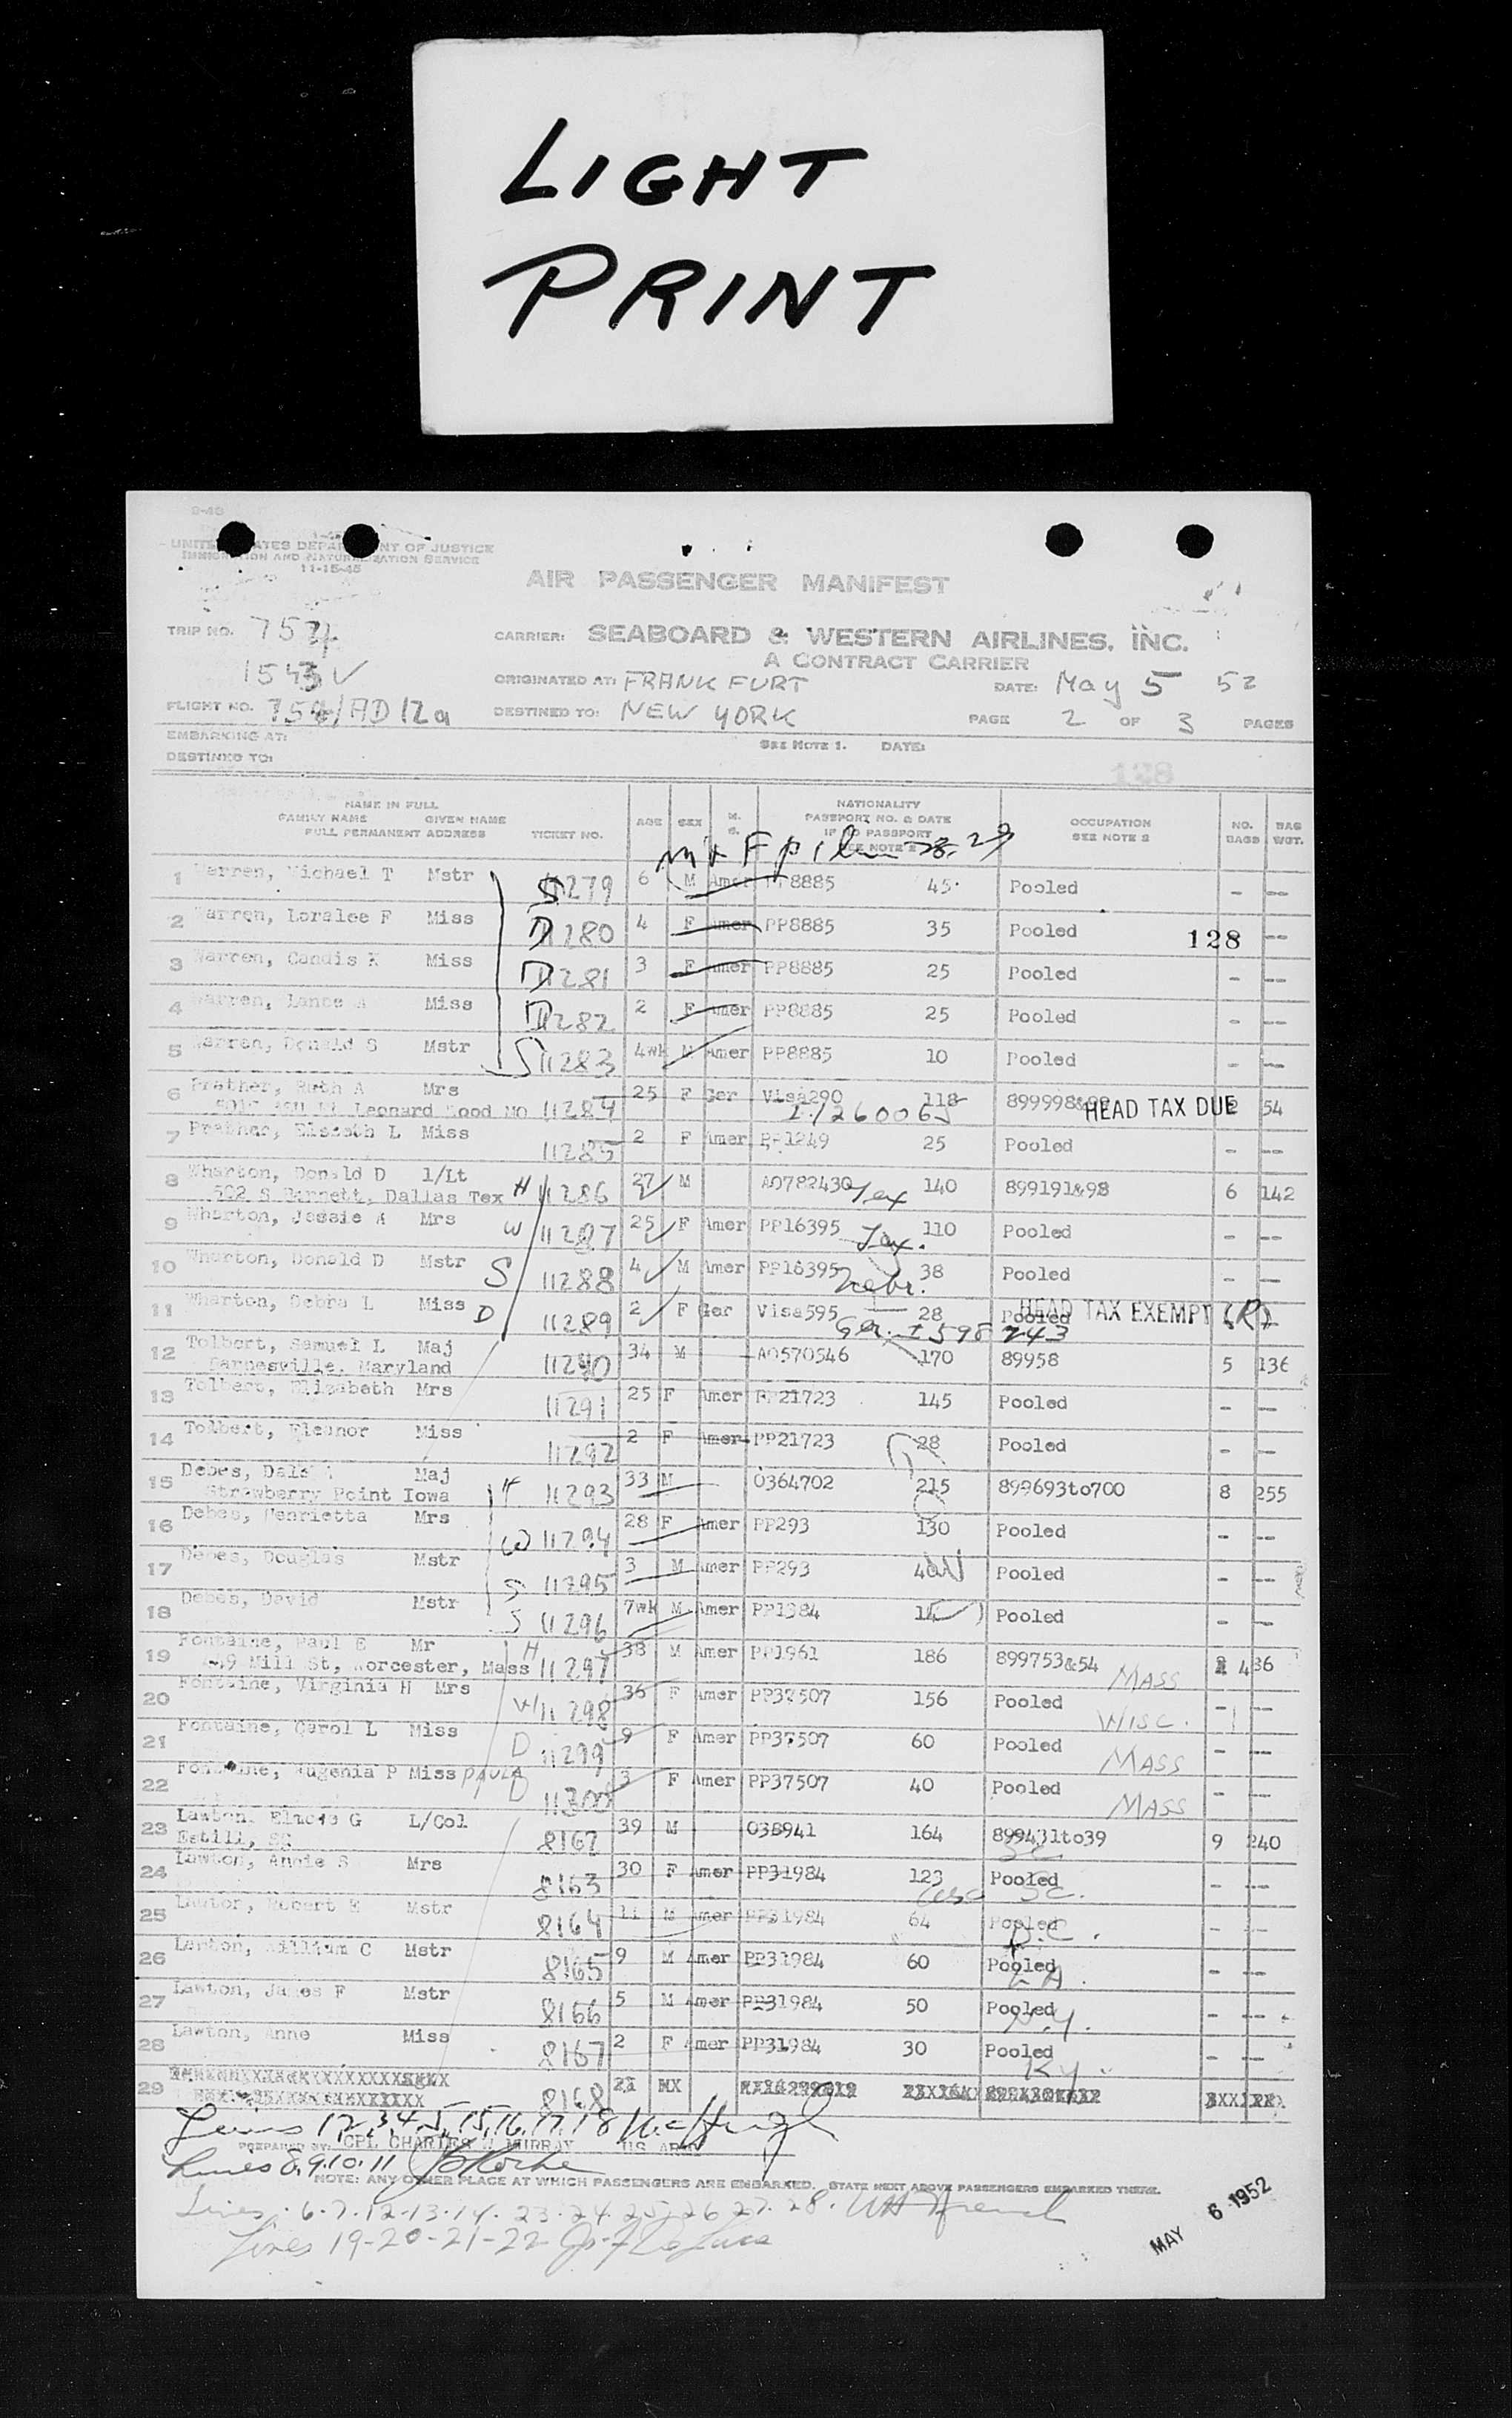 LIGHT
PRINT
UNITED STATES DEPARTMENT OF JUSTICE
IMMIGRATION AND NATURALIZATION SERVICE
11-15-45
AIR PASSENGER MANIFEST
TRIP NO. 754
1543 V
CARRIER: SEABOARD & WESTERN AIRLINES, INC.
A CONTRACT CARRIER
ORIGINATED AT: FRANKFURT DATE: May 5 52
FLIGHT NO. 754/AD 12a DESTINED TO: NEW YORK PAGE 2 OF 3 PAGES
EMBARKING AT: SEE NOTE 1. DATE:
DESTINED TO:
128
NAME IN FULL
FAMILY NAME GIVEN NAME
FULL PERMANENT ADDRESS TICKET NO. AGE SEX M. S. NATIONALITY PASSPORT NO. & DATE IF NO PASSPORT SEE NOTE OCCUPATION SEE NOTE 2 NO. BAGS BAG WGT.
1 Warren, Michael T Mstr S 11279 6 M Amer PP8885 45 Pooled - --
2 Warren, Loralee F Miss D 11280 4 F Amer PP8885 35 Pooled 128 --
3 Warren, Candis K Miss D 11281 3 F Amer PP8885 25 Pooled - --
4 Warren, Lance A Miss D 11282 2 F Amer PP8885 25 Pooled - --
5 Warren, Donald S Mstr S 11283 4wk M Amer PP8885 10 Pooled - --
6 Prather, Ruth A Mrs 11284 25 F Ger Visa290 118 HEAD TAX DUE 2 54
Leonard Wood MO
7 Prather, Elsbeth L Miss 11285 2 F Amer PP1249 25 Pooled - --
8 Wharton, Donald D 1/Lt H 11286 27 M AO782430 Tex 140 899191&98 6 142
502 S Barnett, Dallas Tex
9 Wharton, Jessie A Mrs W 11287 25 F Amer PP16395 Tex. 110 Pooled - --
10 Wharton, Donald D Mstr S 11288 4 M Amer PP16395 Nebr. 38 Pooled - --
11 Wharton, Debra L Miss D 11289 2 F Ger Visa595 28 Pooled HEAD TAX EXEMPT (R)
12 Tolbert, Samuel L Maj 11290 34 M AO570546 170 89958 5 136
Barnesville, Maryland
13 Tolbert, Elizabeth Mrs 11291 25 F Amer PP21723 145 Pooled - --
14 Tolbert, Eleanor Miss 11292 2 F Amer PP21723 28 Pooled - --
15 Debes, Dale Maj H 11293 33 M O364702 215 899693to700 8 255
Strawberry Point Iowa
16 Debes, Henrietta Mrs W 11294 28 F Amer PP293 130 Pooled - --
17 Debes, Douglas Mstr S 11295 3 M Amer PP293 Pooled - --
18 Debes, David Mstr S 11296 7wk M Amer PP1384 Pooled - --
19 Fontaine, Paul E Mr H 11297 38 M Amer PP1961 186 899753&54 MASS
Mill St, Worcester, Mass
20 Fontaine, Virginia H Mrs W 11298 36 F Amer PP37507 156 Pooled WISC. - --
21 Fontaine, Carol L Miss D 11299 9 F Amer PP37507 60 Pooled MASS - --
22 Fontaine, Eugenia P Miss PAULA D 11300 3 F Amer PP37507 40 Pooled MASS - --
23 Lawton, G L/Col 8162 39 M O38941 164 899431to39 9 240
Estill, SC
24 Lawton, Annie S Mrs 8163 30 F Amer PP31984 123 Pooled SC. - --
25 Lawton, Robert E Mstr 8164 11 M Amer PP31984 64 Pooled - --
26 Lawton, William C Mstr 8165 9 M Amer PP31984 60 Pooled - --
27 Lawton, James F Mstr 8166 5 M Amer PP31984 50 Pooled N.Y. - --
28 Lawton, Anne Miss 8167 2 F Amer PP31984 30 Pooled Ky - --
29 8168
Lines 1,2,3,4,5,15,16,17,18
PREPARED BY: CPL CHARLES M MURRAY US ARMY
Lines 8.9.10.11
NOTE: ANY OTHER PLACE AT WHICH PASSENGERS ARE EMBARKED, STATE NEXT ABOVE PASSENGERS EMBARKED THERE.
Lines 6.7.12.13.14. 23.24.25.26 27.28. WH French
Lines 19-20-21-22
MAY 6 1952